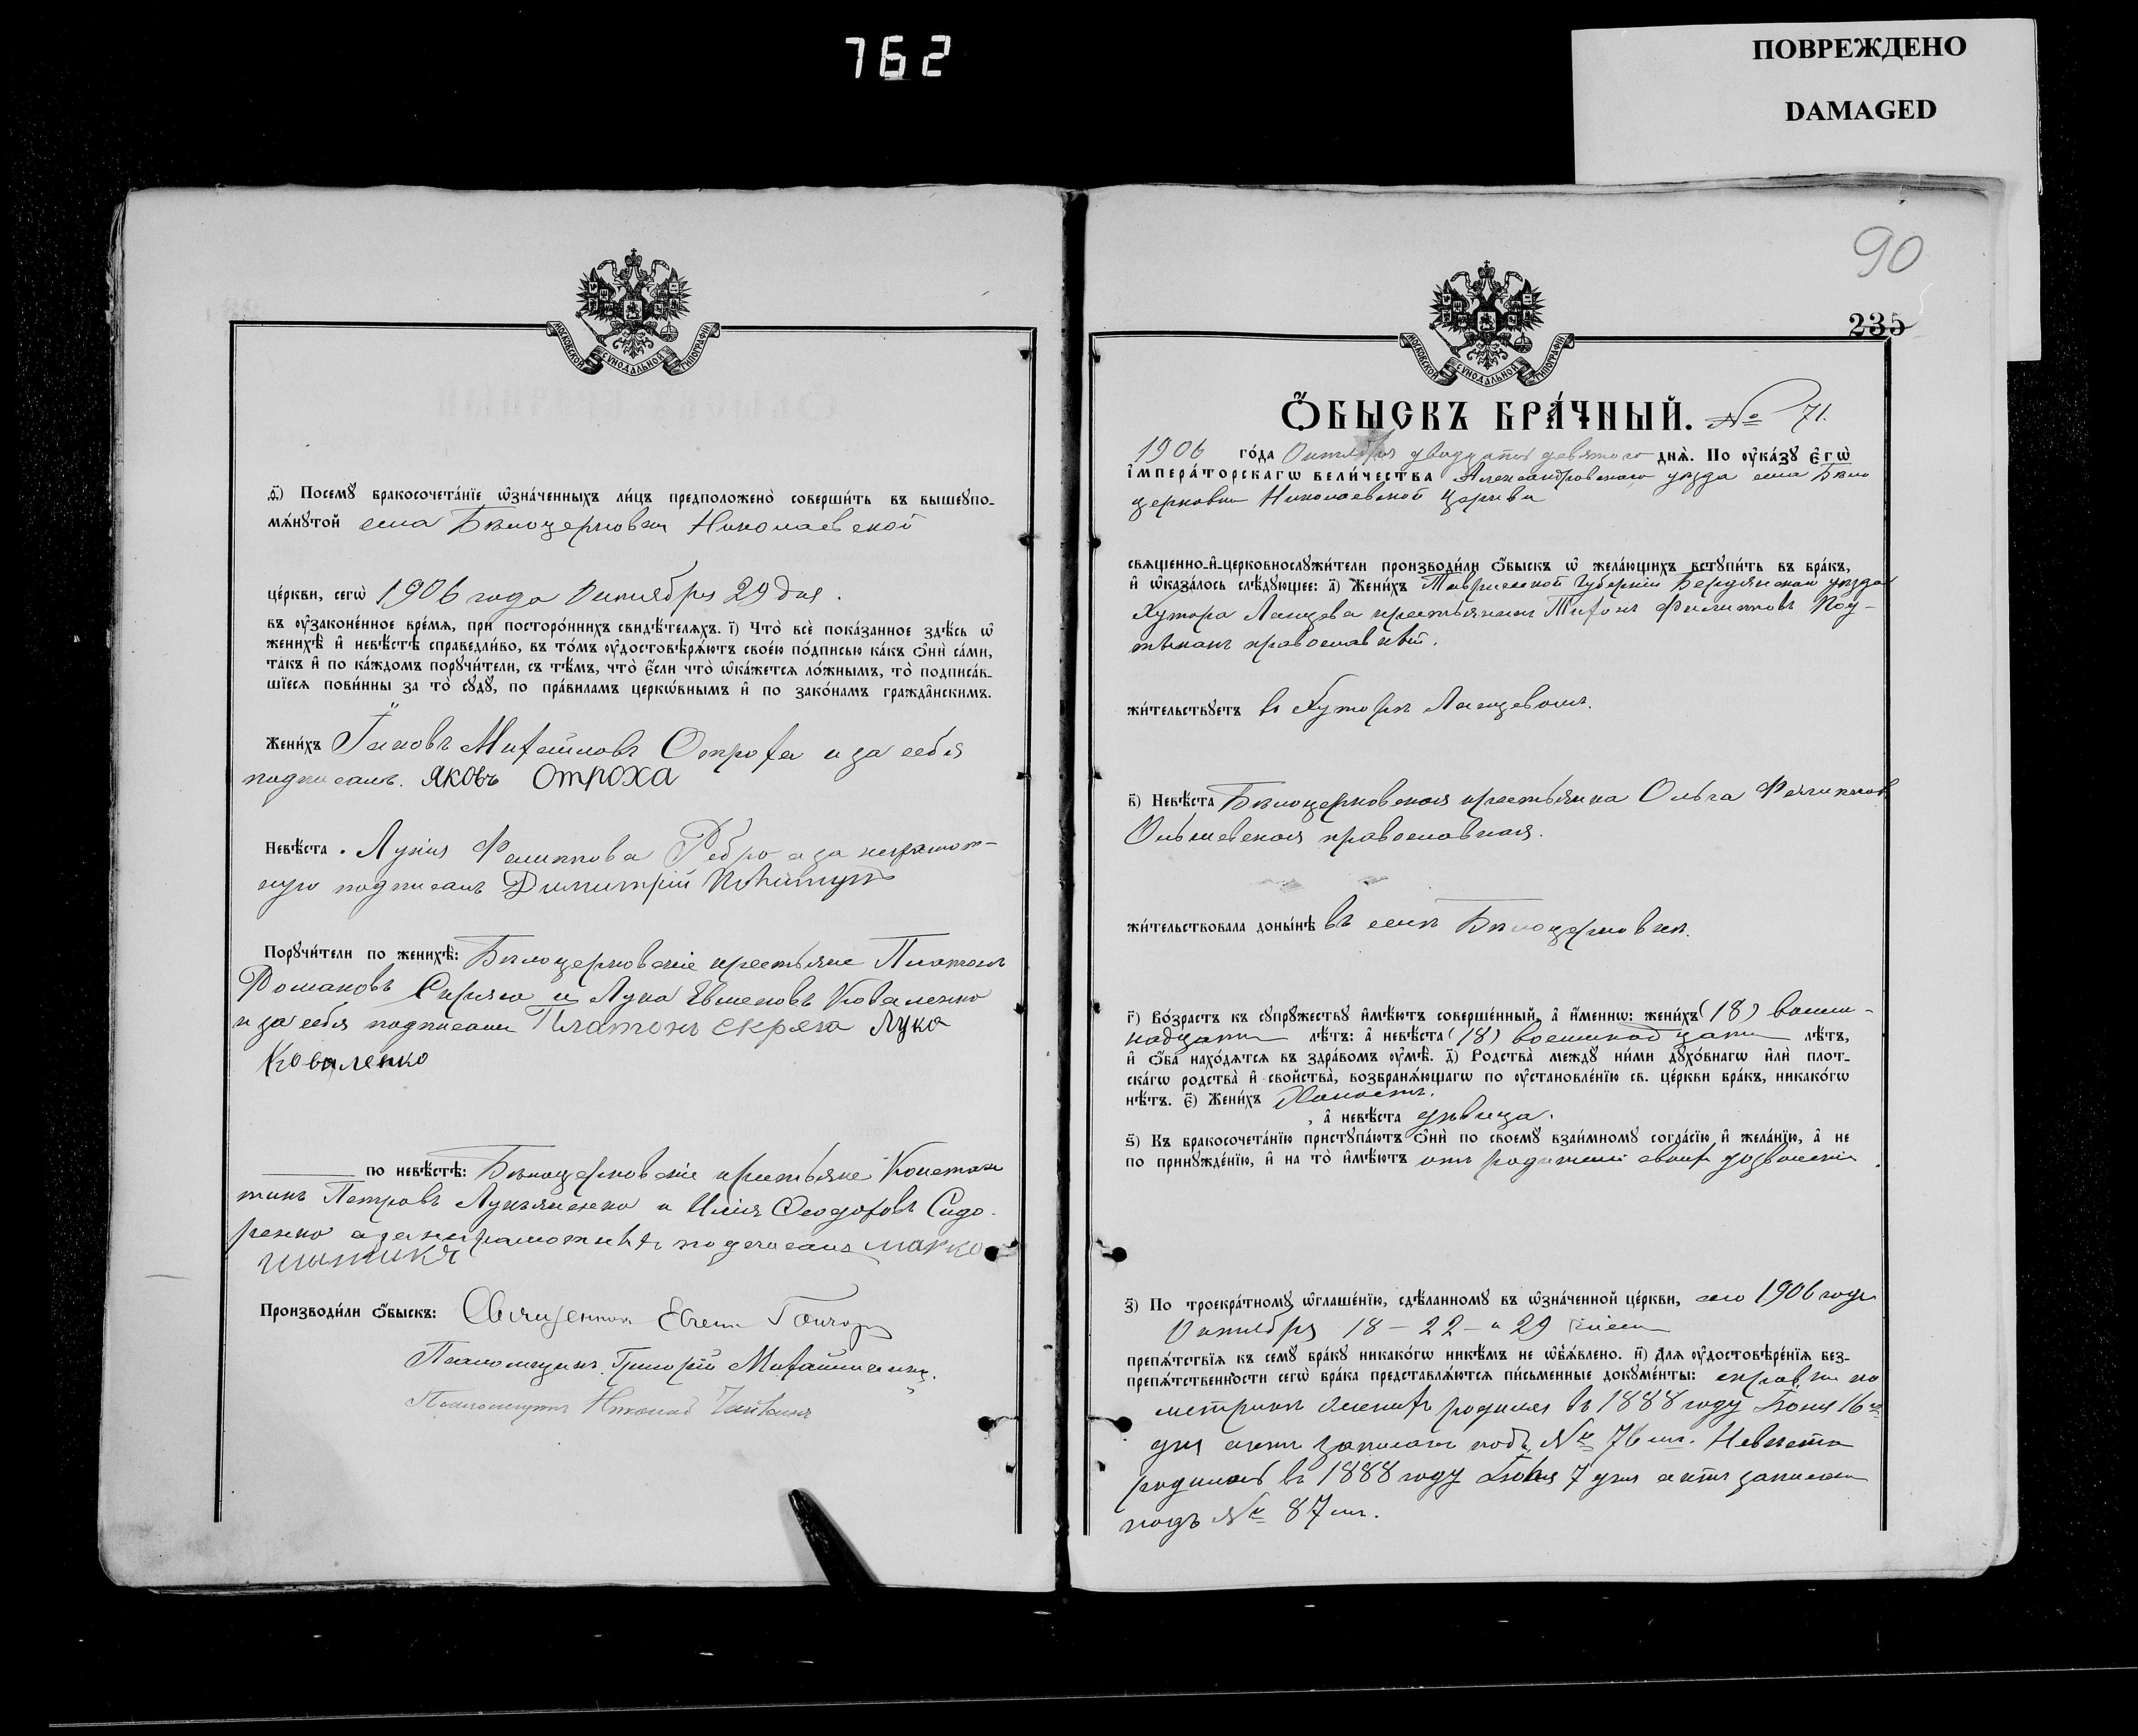 762
ПОВРЕЖДЕНО
DAMAGED
МОСКОВСКОЙ СѴНОДАЛЬНОЙ ТИПОГРАФІИ
ѳ҃) Посемꙋ бракосочета́нїе ѡ҆зна́ченныхъ ли́цъ предположено̀ соверши́ть въ вышеꙋпо-
мѧ́нꙋтой села Бѣлоцерковки Николаевской
це́ркви, сегѡ̀ 1906 года Октября 29 дня.
въ ᲂу҆зако́ненное вре́мѧ, прѝ посторо́ннихъ свидѣ́телѧхъ. і҃) Что̀ всѐ пока́занное здѣ́сь ѡ҆
женихѣ̀ и҆ невѣ́стѣ справедли́во, въ то́мъ ᲂу҆достовѣрѧ́ютъ свое́ю по́дписью ка́къ ѻ҆нѝ са́ми,
та́къ и҆ по ка́ждомъ порꙋчи́тели, съ тѣ́мъ, что̀ є҆́сли что̀ ѡ҆ка́жетсѧ ло́жнымъ, то̀ подписа́в-
шїесѧ пови́нны за то̀ сꙋдꙋ̀, по пра́виламъ церкѡ́внымъ и҆ по зако́намъ гражда̂нскимъ.
Жени́хъ Іаковъ Михайловъ Отроха и за себя
подписалъ. Яковъ Отроха
Невѣ́ста. Лукія Филиппова Ребро а за неграмот-
ную подписалъ Димитрій
Порꙋчи́тели по женихѣ̀: Бѣлоцерковскіе крестьяне Платонъ
Романовъ Скряга и Лука Евменовъ Коваленко
и за себя подписали Платонъ скряга Лука
Коваленко
по невѣ́стѣ: Бѣлоцерковскіе крестьяне Констан
тинъ Петровъ Лукьяненко и Илія Ѳеодоровъ Сидо-
ренко а за неграмотныхъ подписалъ марко
Производи́ли ѻ҆́быскъ: Священникъ Евгеній
Псаломщикъ Григорій
Псаломщикъ Николай
90
235
МОСКОВСКОЙ СѴНОДАЛЬНОЙ ТИПОГРАФІИ
Ѻ҆́БЫСКЪ БРА́ЧНЫЙ. № 71.
1906 го́да Октября двадцать девятого днѧ̀. По ᲂу҆ка́зꙋ є҆гѡ̀
и҆мпера́торскагѡ вели́чества Александровскаго уѣзда села Бѣло
церковки Николаевской Церкви
свѧще́нно-и҆-церковнослꙋжи́тели производи́ли ѻ҆́быскъ ѡ҆ жела́ющихъ встꙋпи́ть въ бра́къ,
и҆ ѡ҆каза́лось слѣ́дꙋющее: а҃) Жени́хъ Таврической Губерніи Бердянскаго уѣзда
Хутора Ланцева крестьянинъ Тихонъ Филипповъ Под-
тыканъ православный.
жи́тельствꙋетъ въ Хуторѣ Ланцевомъ.
в҃) Невѣ́ста Бѣлоцерковская крестьянка Ольга Филиппов
Ольшевская православная.
жи́тельствовала доны́нѣ въ селѣ Бѣлоцерковкѣ.
г҃) Во́зрастъ къ сꙋпрꙋ́жествꙋ и҆мѣ́ютъ соверше́нный, а҆ и҆́меннѡ: жени́хъ (18) восем-
надцати лѣ́тъ: а҆ невѣ́ста (18) восемнадцати лѣ́тъ,
и҆ ѻ҆́ба нахо́дѧтсѧ въ здра́вомъ ᲂу҆мѣ̀. д҃) Родства̀ междꙋ̀ ни́ми дꙋхо́внагѡ и҆лѝ плот-
ска́гѡ родства̀ и҆ сво́йства̀, возбранѧ́ющагѡ по ᲂу҆становле́нїю св. це́ркви бра́къ, никако́гѡ
нѣ́тъ. є҃) Жени́хъ Холостъ.
, а҆ невѣ́ста дѣвица.
ѕ҃) Къ бракосочета́нїю пристꙋпа́ютъ ѻ҆нѝ по своемꙋ̀ взаи́мномꙋ согла́сїю и҆ жела́нїю, а҆ не
по принꙋжде́нїю, и҆ на то̀ и҆мѣ́ютъ отъ родителей своихъ дозволеніе.
з҃) По троекра́тномꙋ ѡ҆глаше́нїю, сдѣ́ланномꙋ въ ѡ҆зна́ченной це́ркви, сего 1906 года
Октября 18 - 22 - и 29 чиселъ
препѧ́тствїѧ къ семꙋ̀ бра́кꙋ никако́гѡ никѣ́мъ не ѡ҆б̾ѧ́влено. и҃) Длѧ ᲂу҆достовѣре́нїѧ без-
препѧ́тственности сегѡ̀ бра́ка представлѧ́ютсѧ пи́сьменные докꙋме́нты: справки по
метрикѣ Женихъ родился въ 1888 году Іюня 16го
дня актъ записанъ подъ № 76 мъ. Невѣста
родилась въ 1888 году Іюля 7 дня актъ записанъ
подъ № 87 мъ.